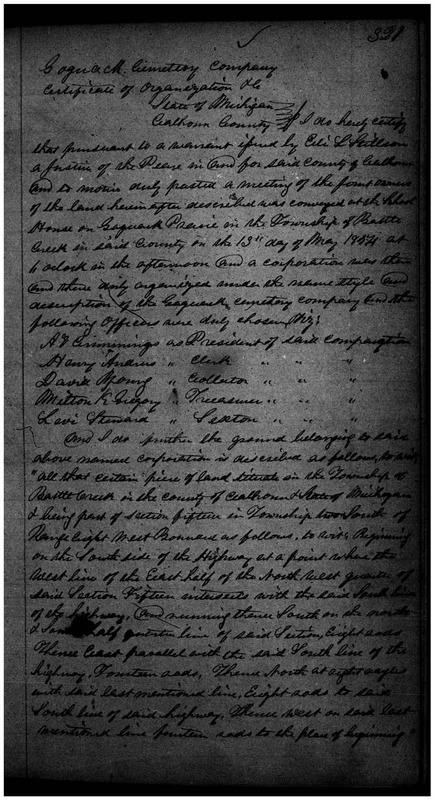 321
Goguack Cemettry Company
Certificate of Organization &c
State of Michigan
Calhoun County } I do herby certify
that pursuant to a warrant issued by Eli L Stillson
a Justice of the Peace in and for said county of Calhoun
and to notice duly posted a meeting of the joint owners
of the land herein after described was conveyed at the School
House on Goguack Prairie in the Township of Battle
Creek in said County on the 13th day of May 1854 at
6 oclock in the afternoon and a corporation was then
and there duly organized under the name style and
description of the Goguack cemetery company and the
following Officers were duly chosen Viz:
A Cummings as President of said corporation
Henry Andrus " Clerk " " "
David Young " Collector " " "
Milton K Gregory " Treasurer " " "
Levi Steward " Sexton " " "
And I do further the ground belonging to said
above named corporation is described as follows, to wit,
"all that certain piece of land situate in the Township of
Battle Creek in the county of Calhoun & State of Michigan
& being part of section fifteen in Township two South of
Range Eight West Bounded as follows, to wit: Beginning
on the South side of the Highway at a point where the
West line of the East half of the North West quarter of
said Section Fifteen intersects with the said South line
of the highway, And running thence South on the north
& South half quarter line of said Section, Eight rods
Thence East parallel with the said South line of the
highway, Fourteen rods, Thence North at right angles
with said last mentioned line, Eight rods to said
South line of said highway, Thence west on said last
mentioned line fourteen rods to the place of beginning"